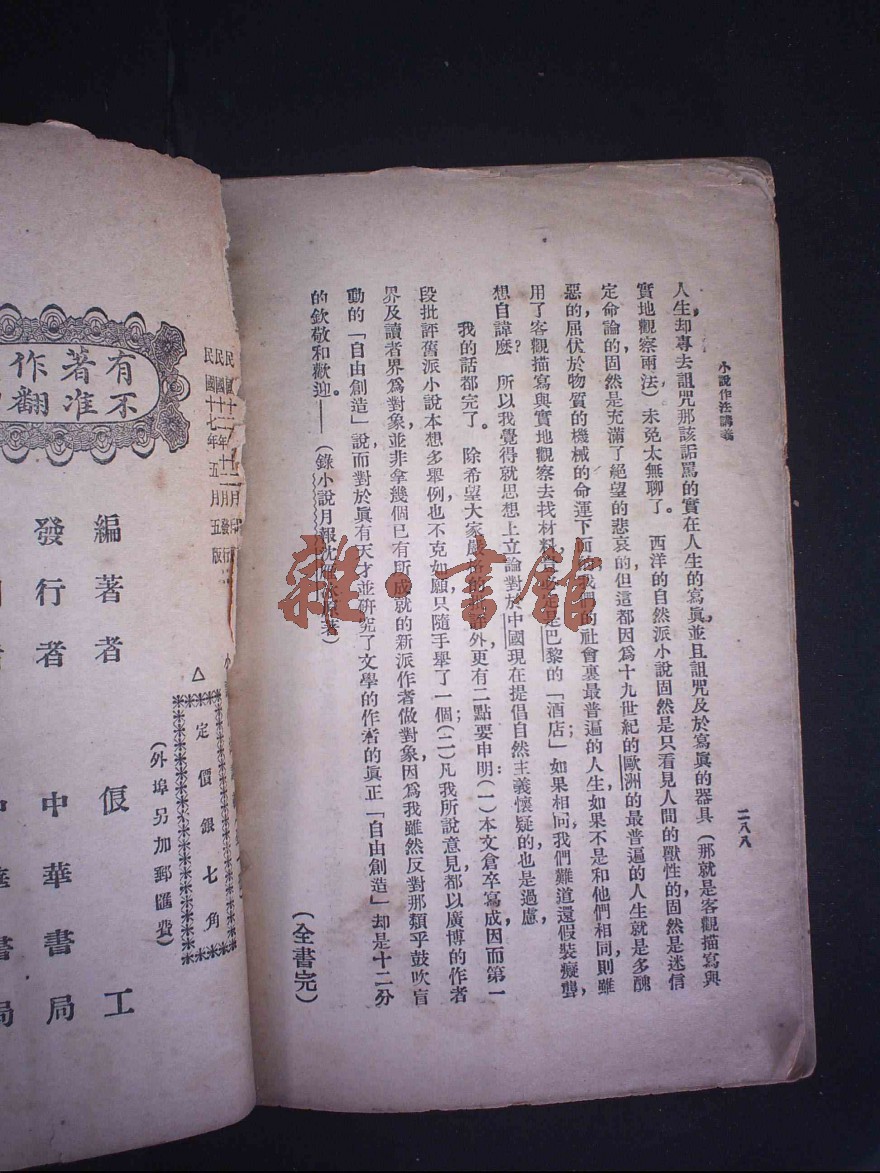 小說作法講義
二八八
人生却專去詛咒那該詬罵的實在人生的寫眞,並且詛咒及於寫眞的器具(那就是客觀描寫與
實地觀察兩法)未免太無聊了。西洋的自然派小說固然是只看見人間的獸性的,固然是迷信
定命論的,固然是充滿了絕望的悲哀的,但這都因爲十九世紀的歐洲的最普遍的人生就是多醜
惡的屈伏於物質的機械的命運下面的;我們的社會裏最普遍的人生,如果不是和他們相同,則雖
用了客觀描寫與實地觀察去找材料,是巴黎的「酒店」;如果相同,我們難道還假裝癡聾,
想自諱麽?所以我覺得就思想上立論對於中國現在提倡自然主義懷疑的也是過慮,
我的話都完了。除希望大家嚴格的批評外,更有二點要申明:(一)本文倉卒寫成,因而第一
段批評舊派小說本想多舉例也不克如願,只隨手舉了一個;(二)凡我所說意見都以廣博的作者
界及讀者界爲對象,並非拿幾個已有所成就的新派作者做對象,因爲我雖然反對那類乎鼓吹盲
動的「自由創造」說,而對於眞有天才並研究了文學的作者的眞正「自由創造」却是十二分
的欽敬和歡迎。——(錄小說月報沈原著)
(全書完)
雜·書館
有著作
不准翻
民國十七年五月五版
△
定價銀七角
(外埠另加郵匯費)
編著者 倀工
發行者 中華書局
書局